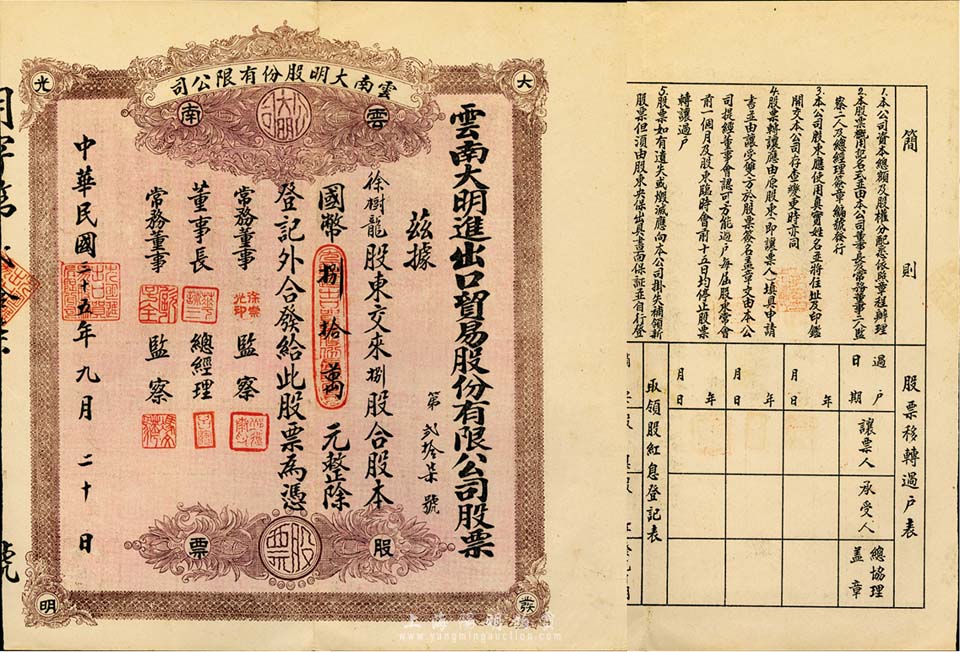 雲南大明股份有限公司
光
大
雲
南
雲南大明進出口貿易股份有限公司股票
第 貳拾柒 號
茲據
徐樹龍 股東交來 捌 股合股本
國幣 捌拾萬 元整除
登記外合發給此股票為憑
董事長
常務董事
常務董事
總經理
監察
監察
中華民國三十五年九月二十日
股
票
股票
明
號
簡則
1.本公司資本總額及股權分配悉依照章程辦理
2.本股票概用記名式並由本公司董事長及常務董事二人監
察二人及總經理簽章編號發行
3.本公司股東應使用真實姓名並將住址及印鑑
開交本公司存查變更時亦同
4.股票轉讓應由原股東(即讓票人)填具申請
書並由讓受雙方於股票簽名蓋章交由本公
司提經董事會認可方能過戶每屆股東常會
前一個月及股東臨時會前十五日均停止股票
轉讓過戶
5.股票如有遺失或燬滅應向本公司掛失補領新
股票但須由股東央保出具書面保証並自行登
股票移轉過戶表
過戶日期
讓票人
承受人
總協理蓋章
年月日
年月日
年月日
年月日
取領股紅息登記表
上海陽明拍賣
www.yangmingauction.com